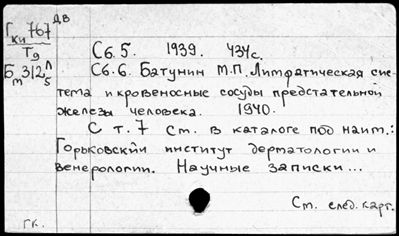 Гки 767 ДВ
Тд
Бт 312 л5
Сб. 5. 1939. 434с.
Сб. 6. Батунин М.П. Лимфатическая сис-
тема и кровеносные сосуды предстательной
железы человека. 1940.
С т. 7 см. в каталоге под наим.:
Горьковский институт дерматологии и
венерологии. Научные записки...
См. след. карт.
гк.